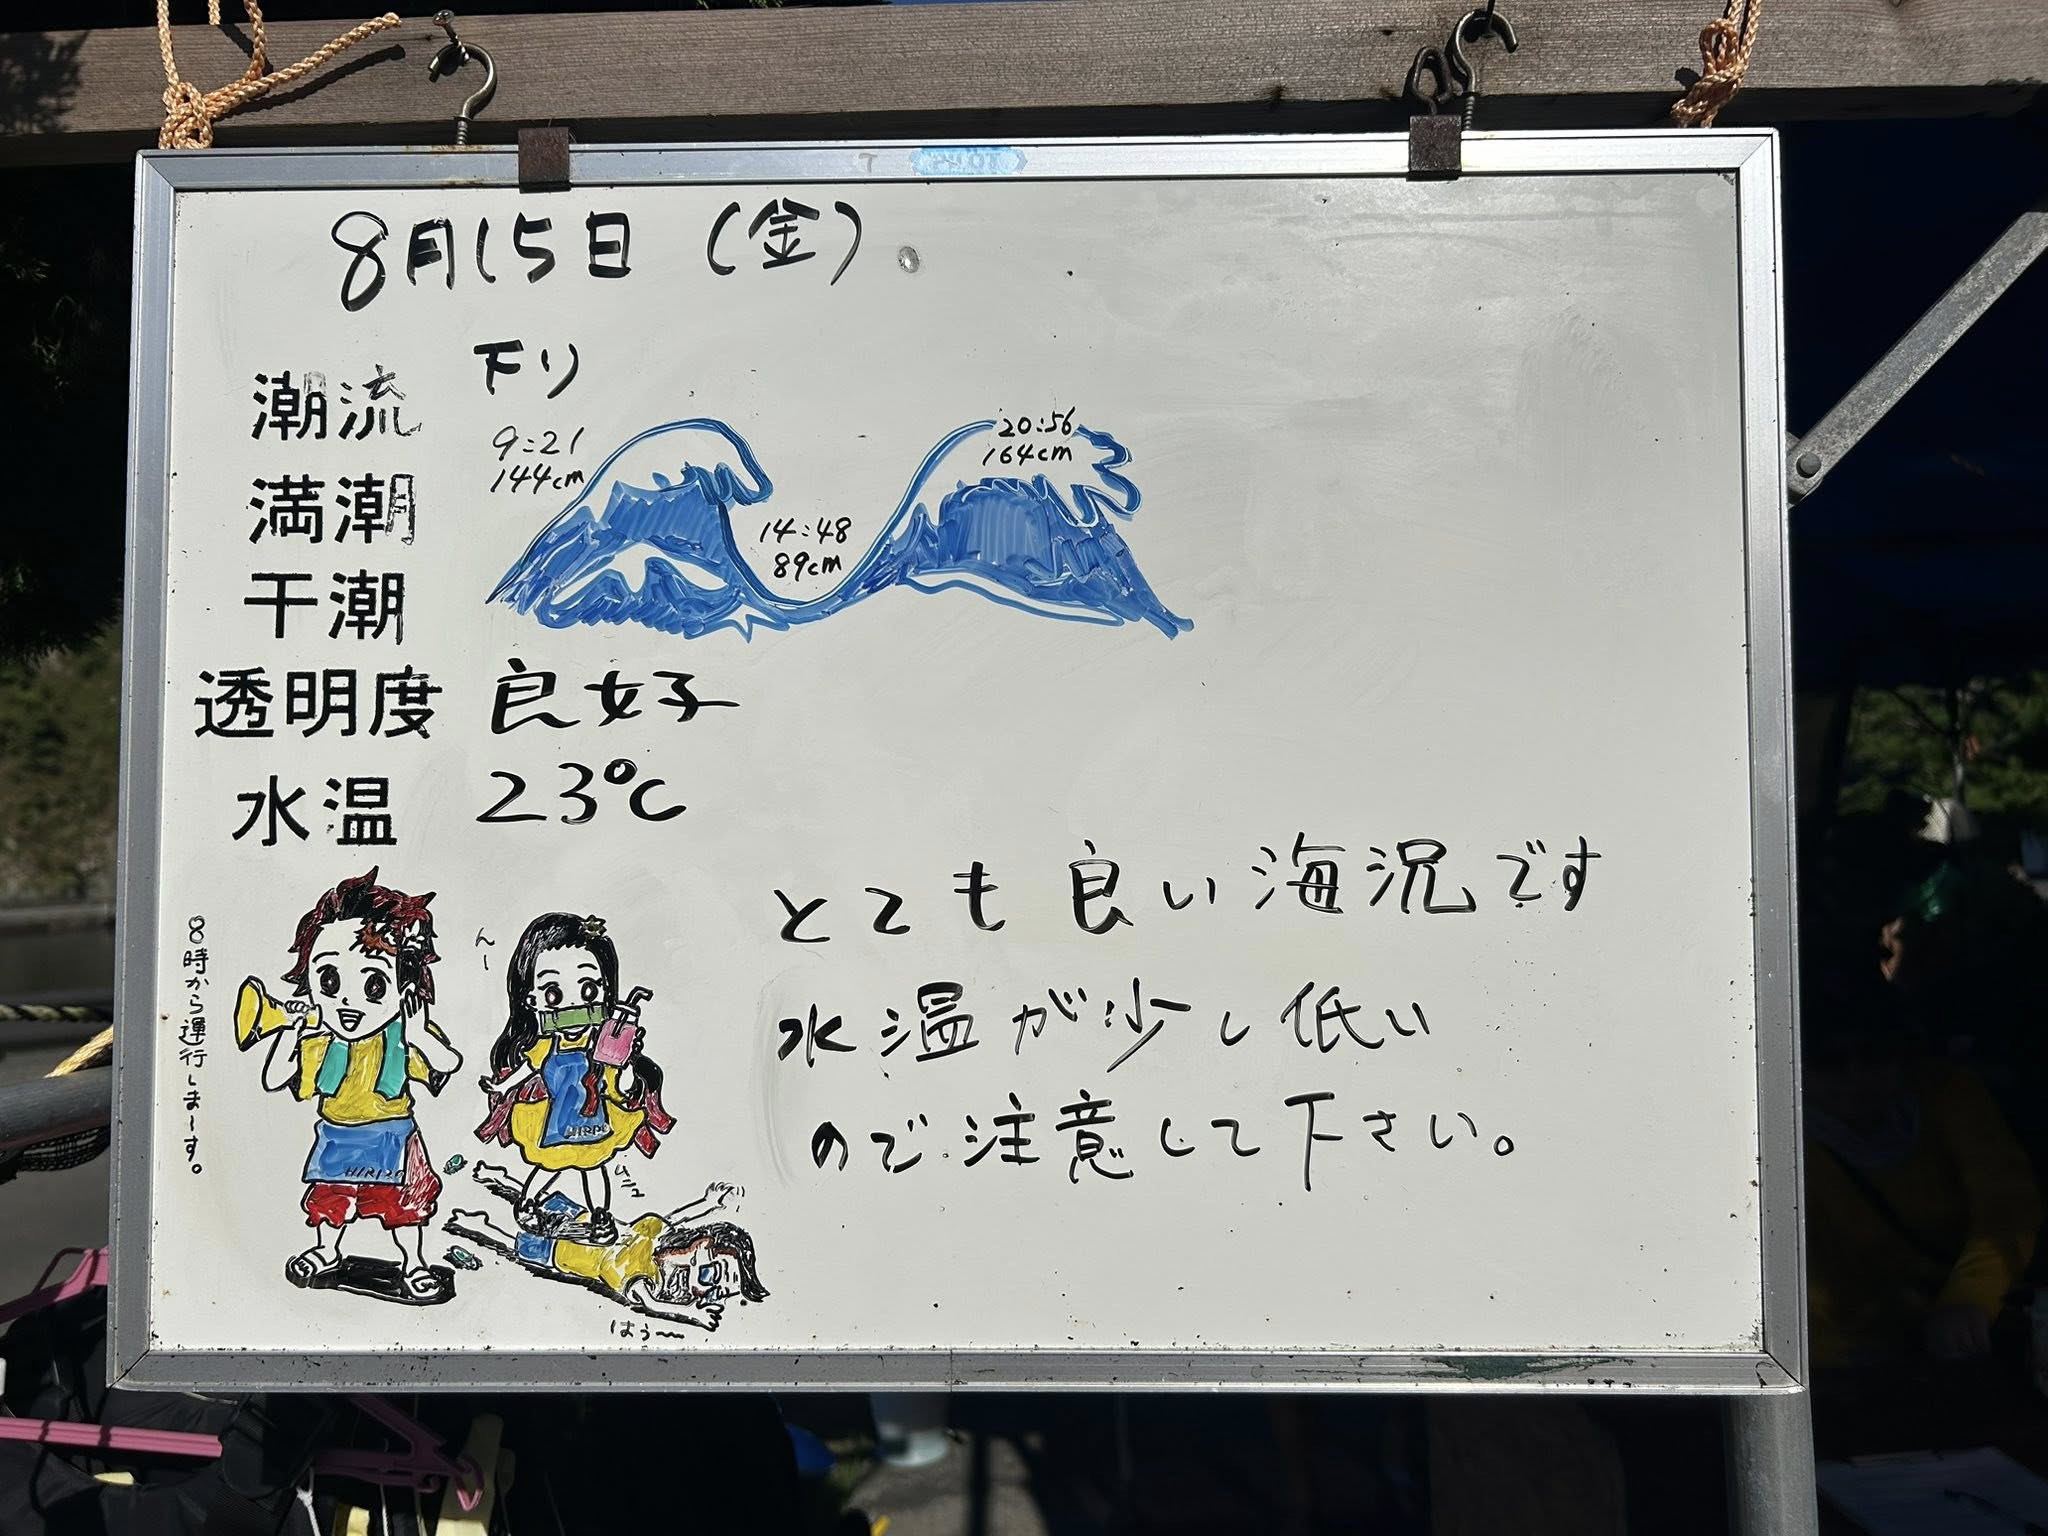 8月15日（金）
潮流 下り
満潮
9:21
144cm
20:56
164cm
干潮
14:48
89cm
透明度 良好
水温 23℃
とても良い海況です
水温が少し低い
ので注意して下さい。
8時から運行しまーす。
んー
HIRIZO
HIRI
ムニュ
はぅ〜